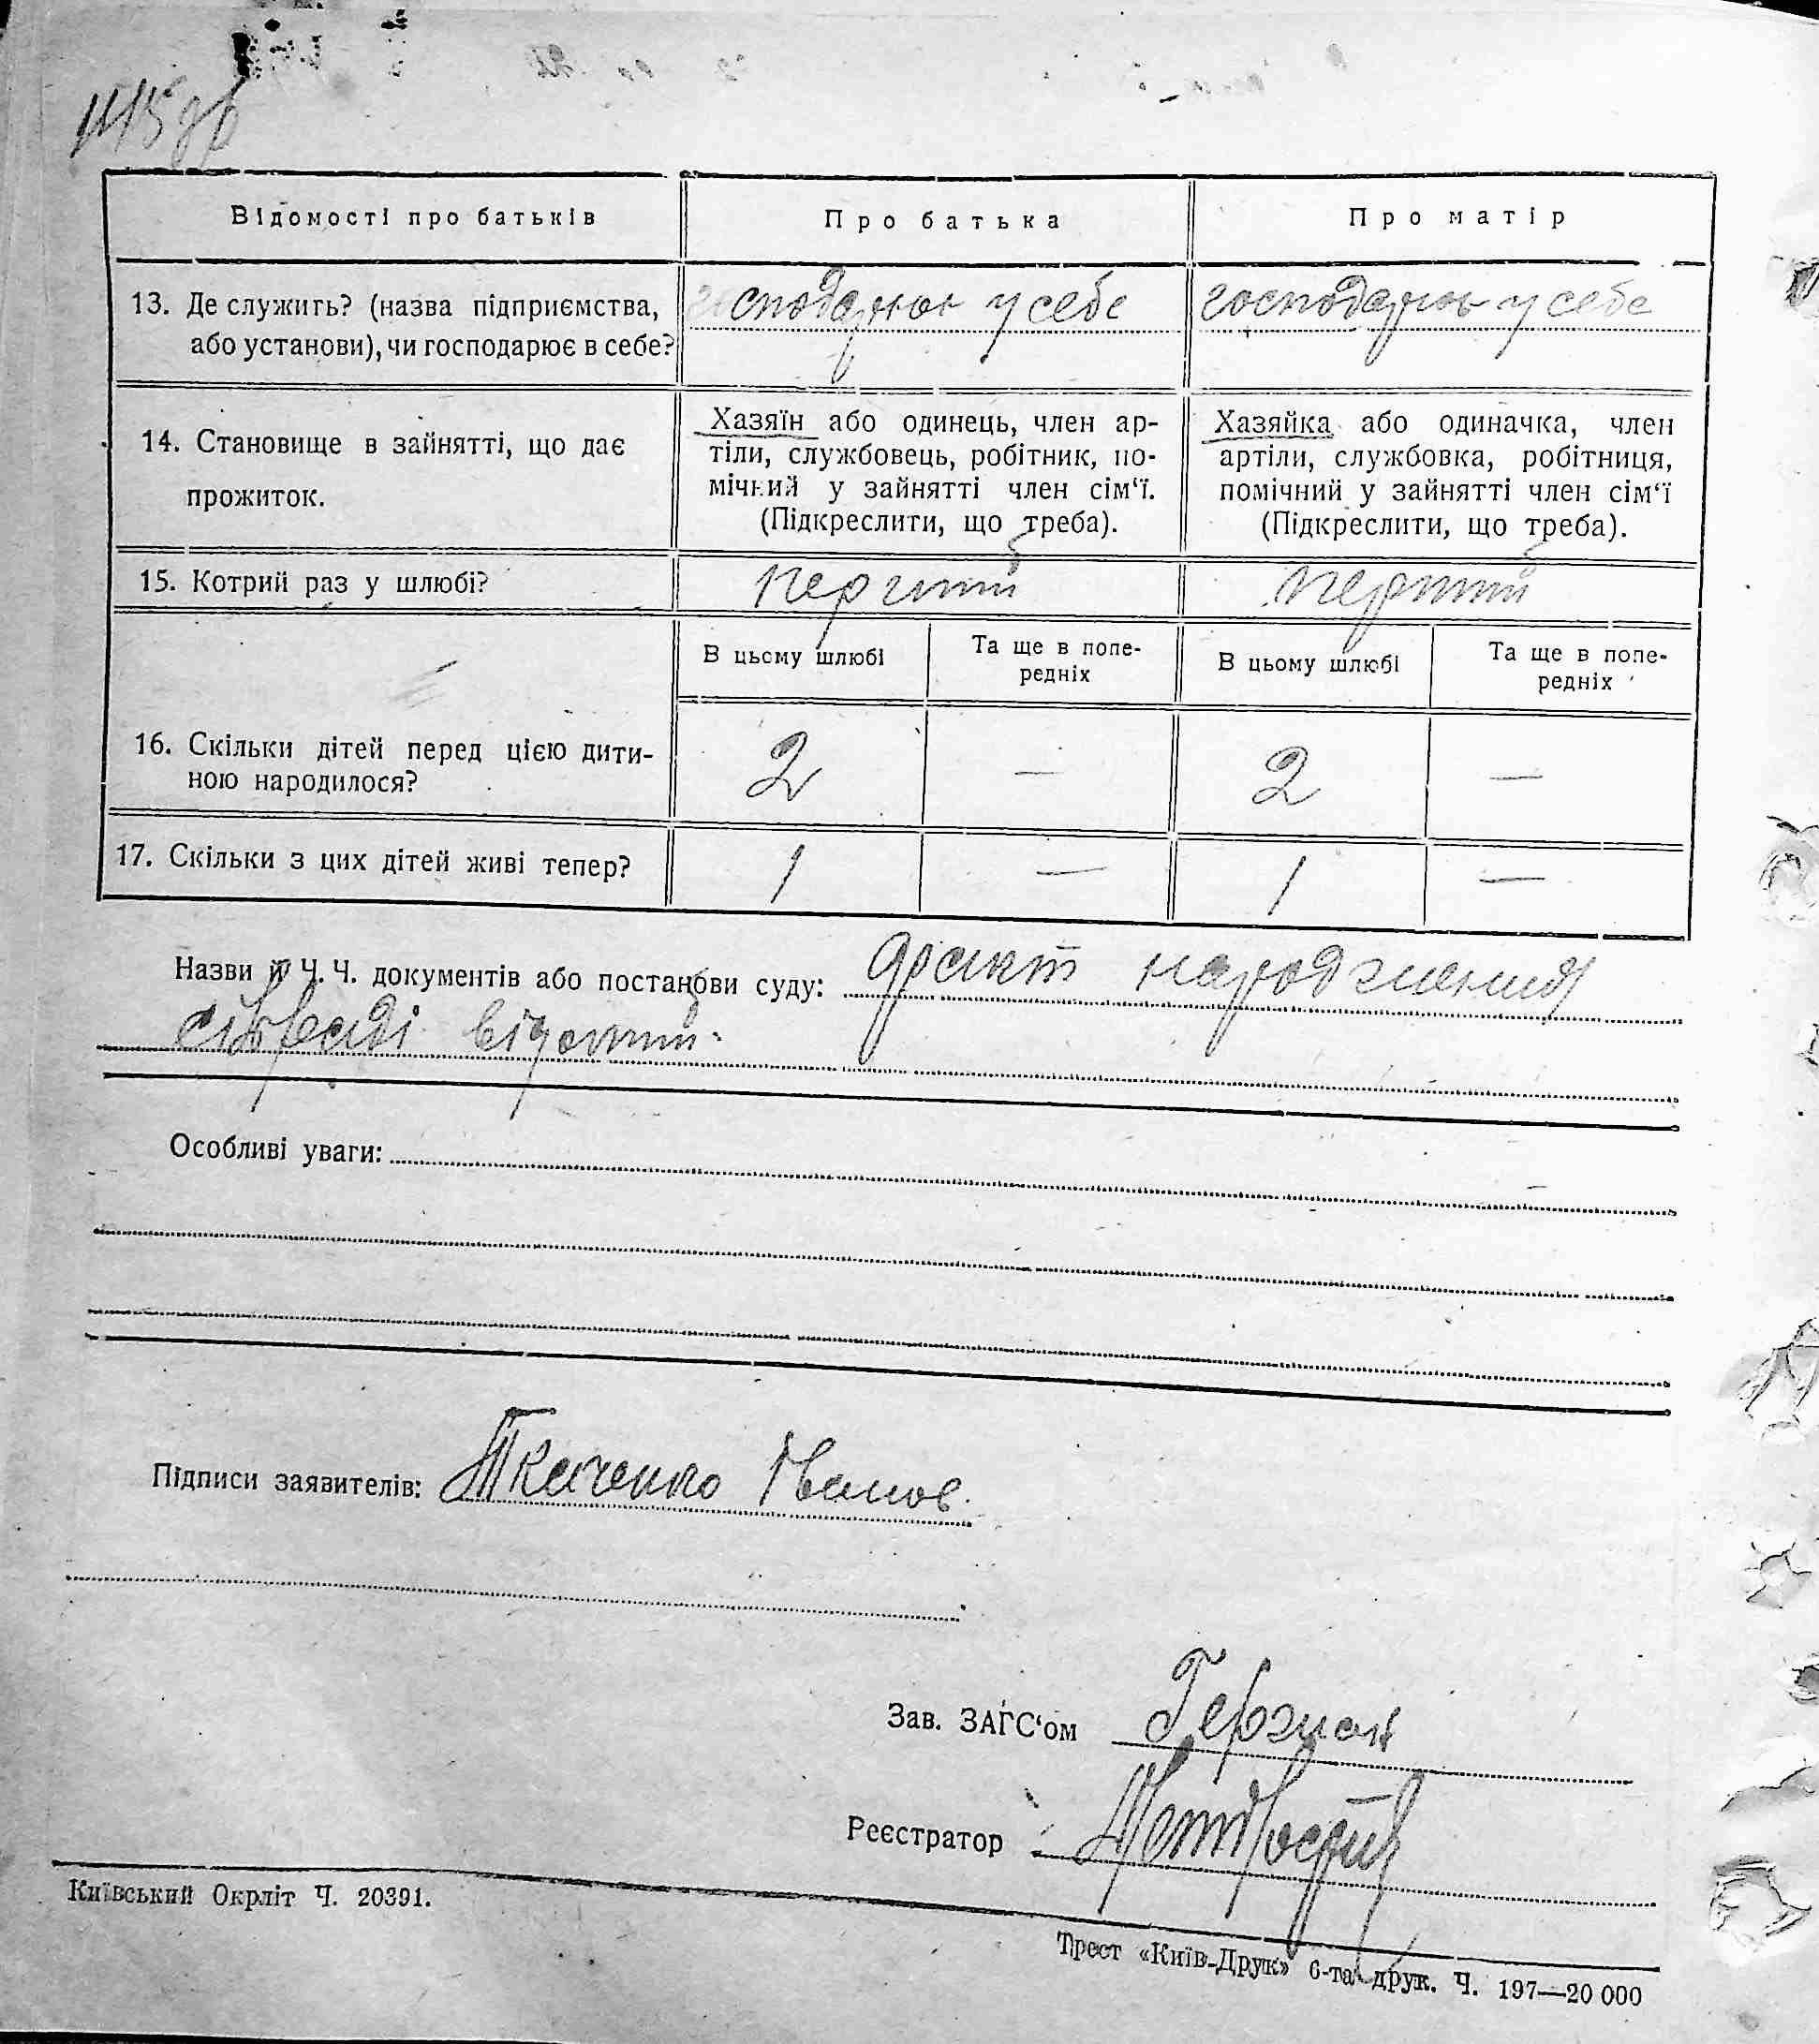 145 зв
Відомості про батьків
Про батька
Про матір
13. Де служить? (назва підприємства,
або установи), чи господарює в себе?
господарює у себе
господарює у себе
14. Становище в зайнятті, що дає
прожиток.
Хазяїн або одинець, член ар-
тіли, службовець, робітник, по-
мічний у зайнятті член сім‘ї.
(Підкреслити, що треба).
Хазяйка або одиначка, член
артіли, службовка, робітниця,
помічний у зайнятті член сім‘ї
(Підкреслити, що треба).
15. Котрий раз у шлюбі?
перший
перший
В цьому шлюбі
Та ще в попе-
редніх
В цьому шлюбі
Та ще в попе-
редніх
16. Скільки дітей перед цією дити-
ною народилося?
2
—
2
—
17. Скільки з цих дітей живі тепер?
1
—
1
—
Назви й Ч. Ч. документів або постанови суду: факт народження
сільраді відомий.
Особливі уваги:
Підписи заявителів: Ткаченко Іванов.
Зав. ЗАГС‘ом
Реєстратор
Київський Окрліт Ч. 20391.
Трест «Київ-Друк» 6-та друк. Ч. 197—20 000